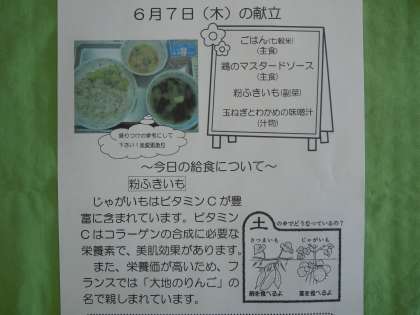 ６月７日（木）の献立
ごはん(七穀米)
(主食)
鶏のマスタードソース
(主食)
粉ふきいも(副菜)
玉ねぎとわかめの味噌汁
(汁物)
盛りつけの参考にして
下さい！
～今日の給食について～
粉ふきいも
じゃがいもはビタミンＣが豊
富に含まれています。ビタミン
Ｃはコラーゲンの合成に必要な
栄養素で、美肌効果があります。
また、栄養価が高いため、フ
ランスでは「大地のりんご」の
名で親しまれています。
土の中でどうなっているの？
さつまいも
じゃがいも
根を食べるよ
茎を食べるよ